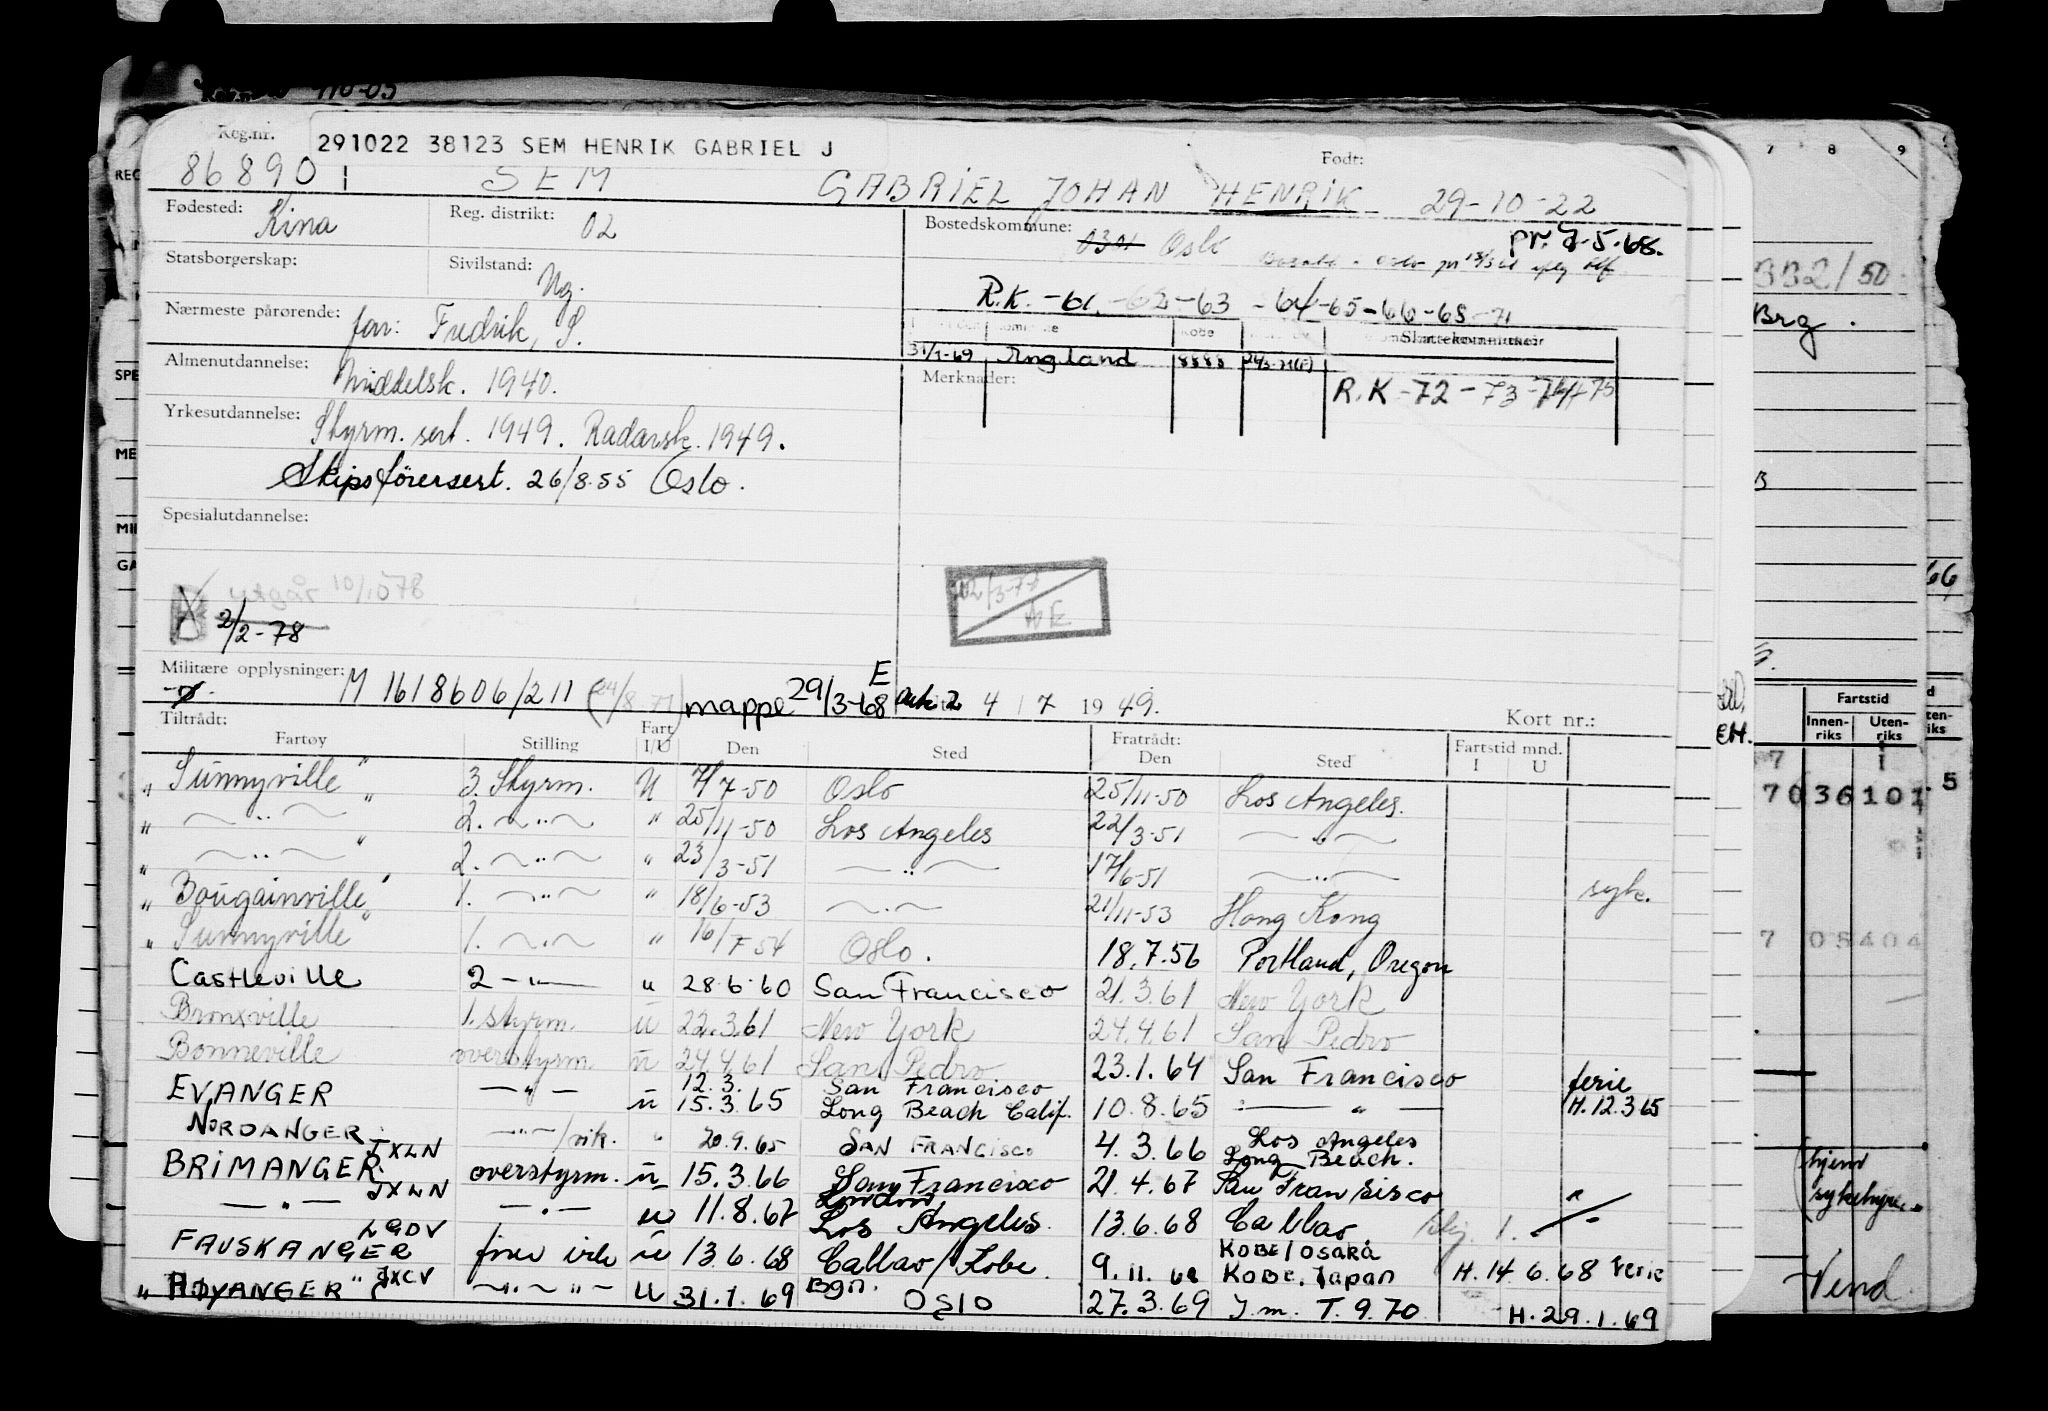 Reg.nr.
291022 38123 SEM HENRIK GABRIEL J
Født:
86890 SEM GABRIEL JOHAN HENRIK 29-10-22
Fødested: Kina
Reg. distrikt: 02
Bostedskommune: 0301 Oslo
Statsborgerskap:
Sivilstand: Ug.
R.K. -61 -62 -63 -64 -65 -66 -68 -71
Nærmeste pårørende: far: Fredrik, S.
31/1-69 England 8888
Skattekommune
Almenutdannelse: Middelsk. 1940.
Merknader:
R.K -72 - 73 - 74 + 75
Yrkesutdannelse: Styrm. sert. 1949. Radarsk. 1949.
Skipsførersert. 26/8-55 Oslo.
Spesialutdannelse:
Utgår
2/2-78
Militære opplysninger: M 1618606/211 mappe 29/3-68 E
4 / 7 1949.
Kort nr.:
Tiltrådt: Fratrådt:
Fartøy Stilling Fart I/U Den Sted Den Sted Fartstid mnd. I U
" Sunnyville " 3. Styrm. U 7/7-50 Oslo 25/11-50 Los Angeles.
" — " — " 2. — " — " 25/11-50 Los Angeles 22/3-51 — " —
" — " — " 2. — " — " 23/3-51 — " — 17/6-51 — " — syk.
" Bougainville " 1. — " — " 18/6-53 — " — 21/11-53 Hong Kong
" Sunnyville " 1. — " — " 16/7-54 Oslo. 18.7.56 Portland, Oregon
Castleville 2 — " — " 28.6.60 San Francisco 21.3.61 New York
Bronxville 1. styrm. u 22.3.61 New York 24.4.61 San Pedro
Bonneville overstyrm. u 24.4.61 San Pedro 23.1.64 San Francisco
EVANGER — " — u 12.3. 15.3.65 San Francisco Long Beach Calif. 10.8.65 — " — ferie H. 12.3.65
NORDANGER — " — /vik. " 20.9.65 SAN FRANCISCO 4.3.66 Los Angeles Long Beach.
BRIMANGER JXLN overstyrm. u 15.3.66 San Francisco 21.4.67 San Fransisco
— " — JXLN — " — u 11.8.67 London Los Angeles 13.6.68 Callao
FAUSKANGER LQDV u 13.6.68 Callao/Kobe 9.11.68 KOBE/OSAKA KOBE, Japan H. 14.6.68 Ferie
" HØYANGER " JXCV — " — " — U 31.1.69 Bgn. OSLO 27.3.69 H. 29.1.69
332/50
Brg.
7 8 9
Fartstid
Innen-riks Uten-riks
hjem
sykehyre
Vend